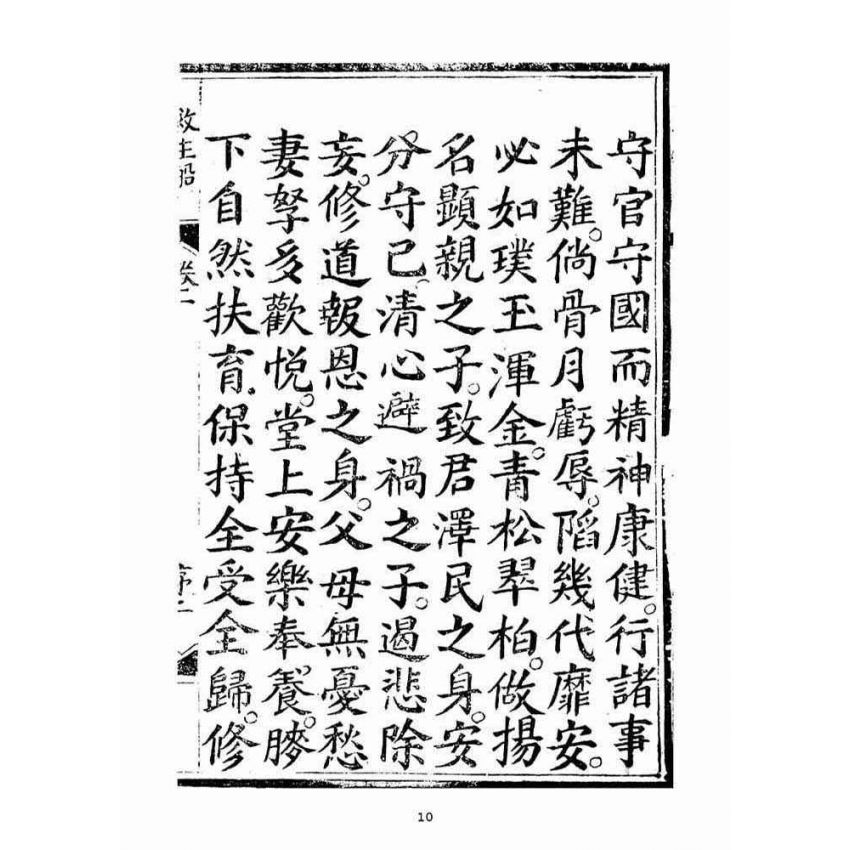 守官守國而精神康健。行諸事
未難。倘骨月虧辱。陷幾代靡安。
必如璞玉渾金。青松翠柏。做揚
名顯親之子。致君澤民之身。安
分守己。清心避禍之子。遏悲除
妄。修道報恩之身。父母無憂愁
妻孥多歡悅。堂上安樂奉養。膝
下自然扶育。保持全受全歸。修
救生船
卷二
序二
10